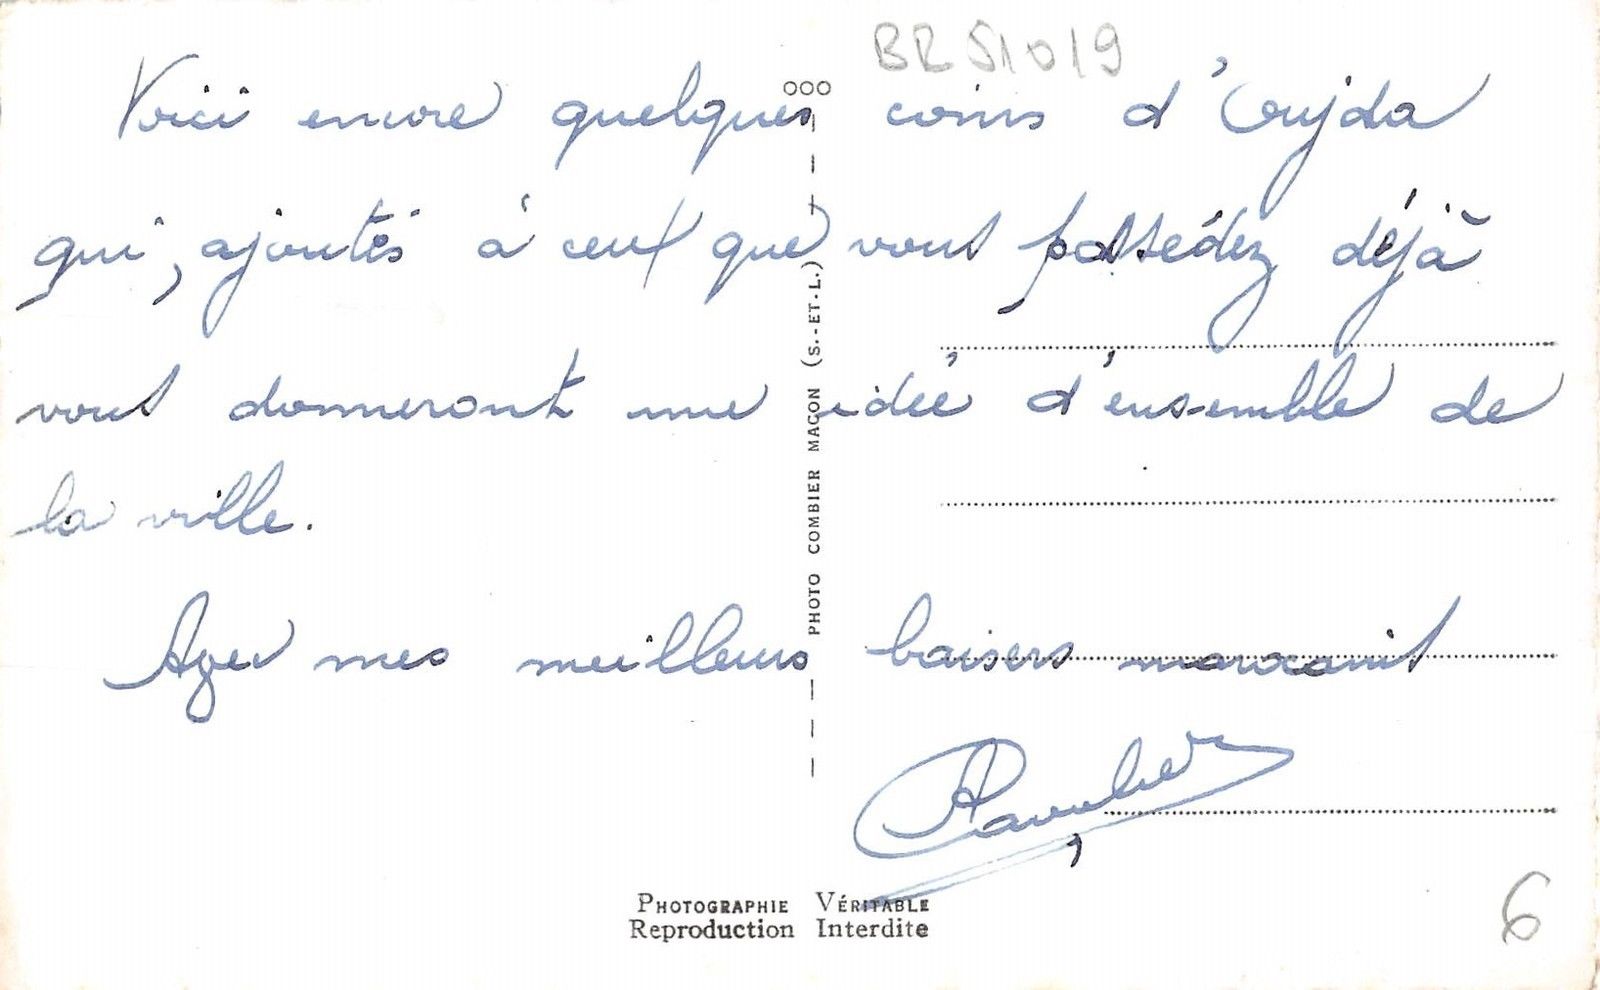 BR51019
Voici encore quelques coins d'Oujda
qui, ajoutés à ceux que vous possédez déjà
vous donneront une idée d'ensemble de
la ville.
Avec mes meilleurs baisers marocains
PHOTO COMBIER MACON (S.-ET-L.)
PHOTOGRAPHIE VÉRITABLE
Reproduction Interdite
6